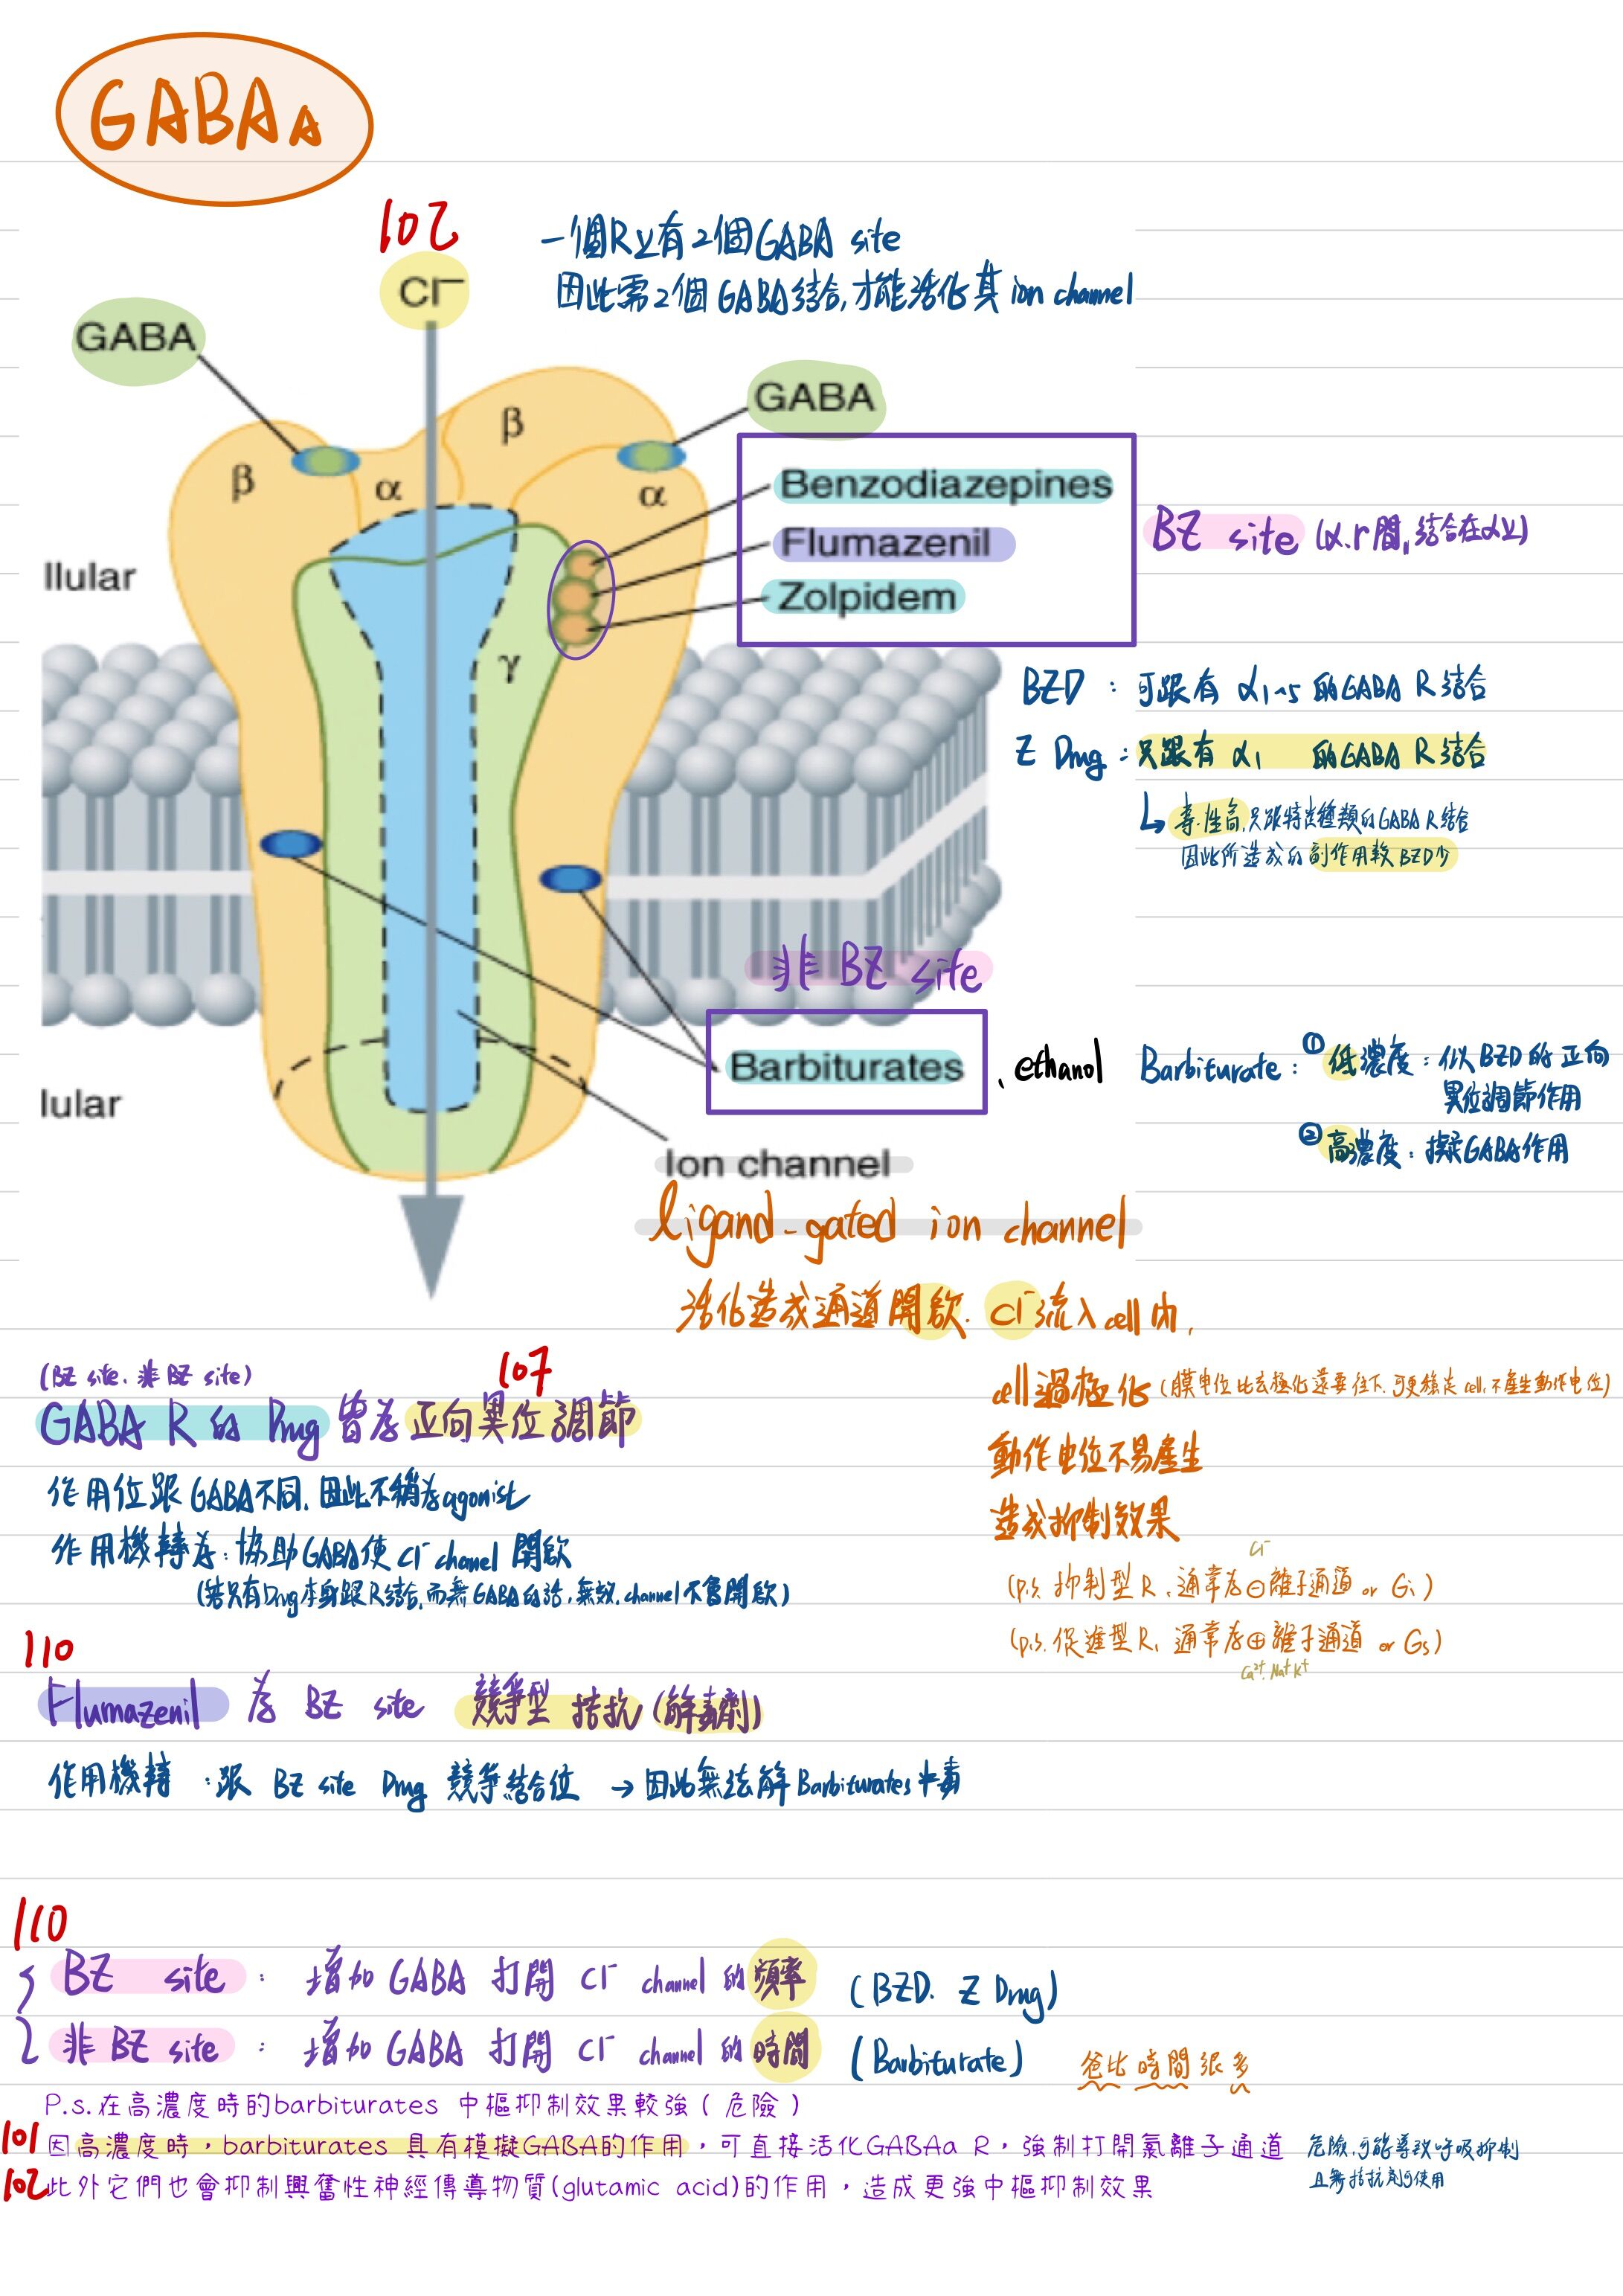 GABAA
102
一個R上有2個GABA site
因此需2個GABA結合,才能活化其ion channel
Cl−
GABA
GABA
β
β
α
α
γ
Benzodiazepines
Flumazenil
Zolpidem
BZ site (α.r間,結合在α上)
llular
BZD : 可跟有 α1~5 的GABA R結合
Z Drug : 只跟有 α1 的GABA R結合
↳ 專一性高,只跟特定種類的GABA R結合
因此所造成的副作用較BZD少
非 BZ site
Barbiturates
、ethanol
Barbiturate : ① 低濃度 : 似BZD的正向
異位調節作用
② 高濃度 : 擬GABA作用
lular
Ion channel
ligand-gated ion channel
活化造成通道開啟. Cl⁻流入cell內,
cell過極化 (膜电位比去極化還要往下.可更穩定cell.不產生動作电位)
動作电位不易產生
造成抑制效果
Cl⁻
(p.s. 抑制型R、通常為⊖離子通道 or Gi)
(p.s. 促進型R、通常為⊕離子通道 or Gs)
Ca²⁺. Na⁺ K⁺
(BZ site、非 BZ site)
107
GABA R 的 Drug 皆為 正向異位調節
作用位跟GABA不同.因此不稱為agonist
作用機轉為:協助GABA使Cl⁻ channel 開啟
(若只有Drug本身跟R結合,而無GABA的話,無效.channel不會開啟)
110
Flumazenil 為 BZ site 競爭型 拮抗 (解毒劑)
作用機轉 :跟 BZ site Drug 競爭結合位 → 因此無法解Barbiturates中毒
110
BZ site : 增加 GABA 打開 Cl⁻ channel 的 頻率 (BZD. Z Drug)
非 BZ site : 增加 GABA 打開 Cl⁻ channel 的 時間 (Barbiturate) 爸比時間很多
P.s.在高濃度時的barbiturates 中樞抑制效果較強(危險)
101 因高濃度時,barbiturates 具有模擬GABA的作用,可直接活化GABAa R,強制打開氯離子通道 危險.可能導致呼吸抑制
102 此外它們也會抑制興奮性神經傳導物質(glutamic acid)的作用,造成更強中樞抑制效果 且無拮抗劑可使用